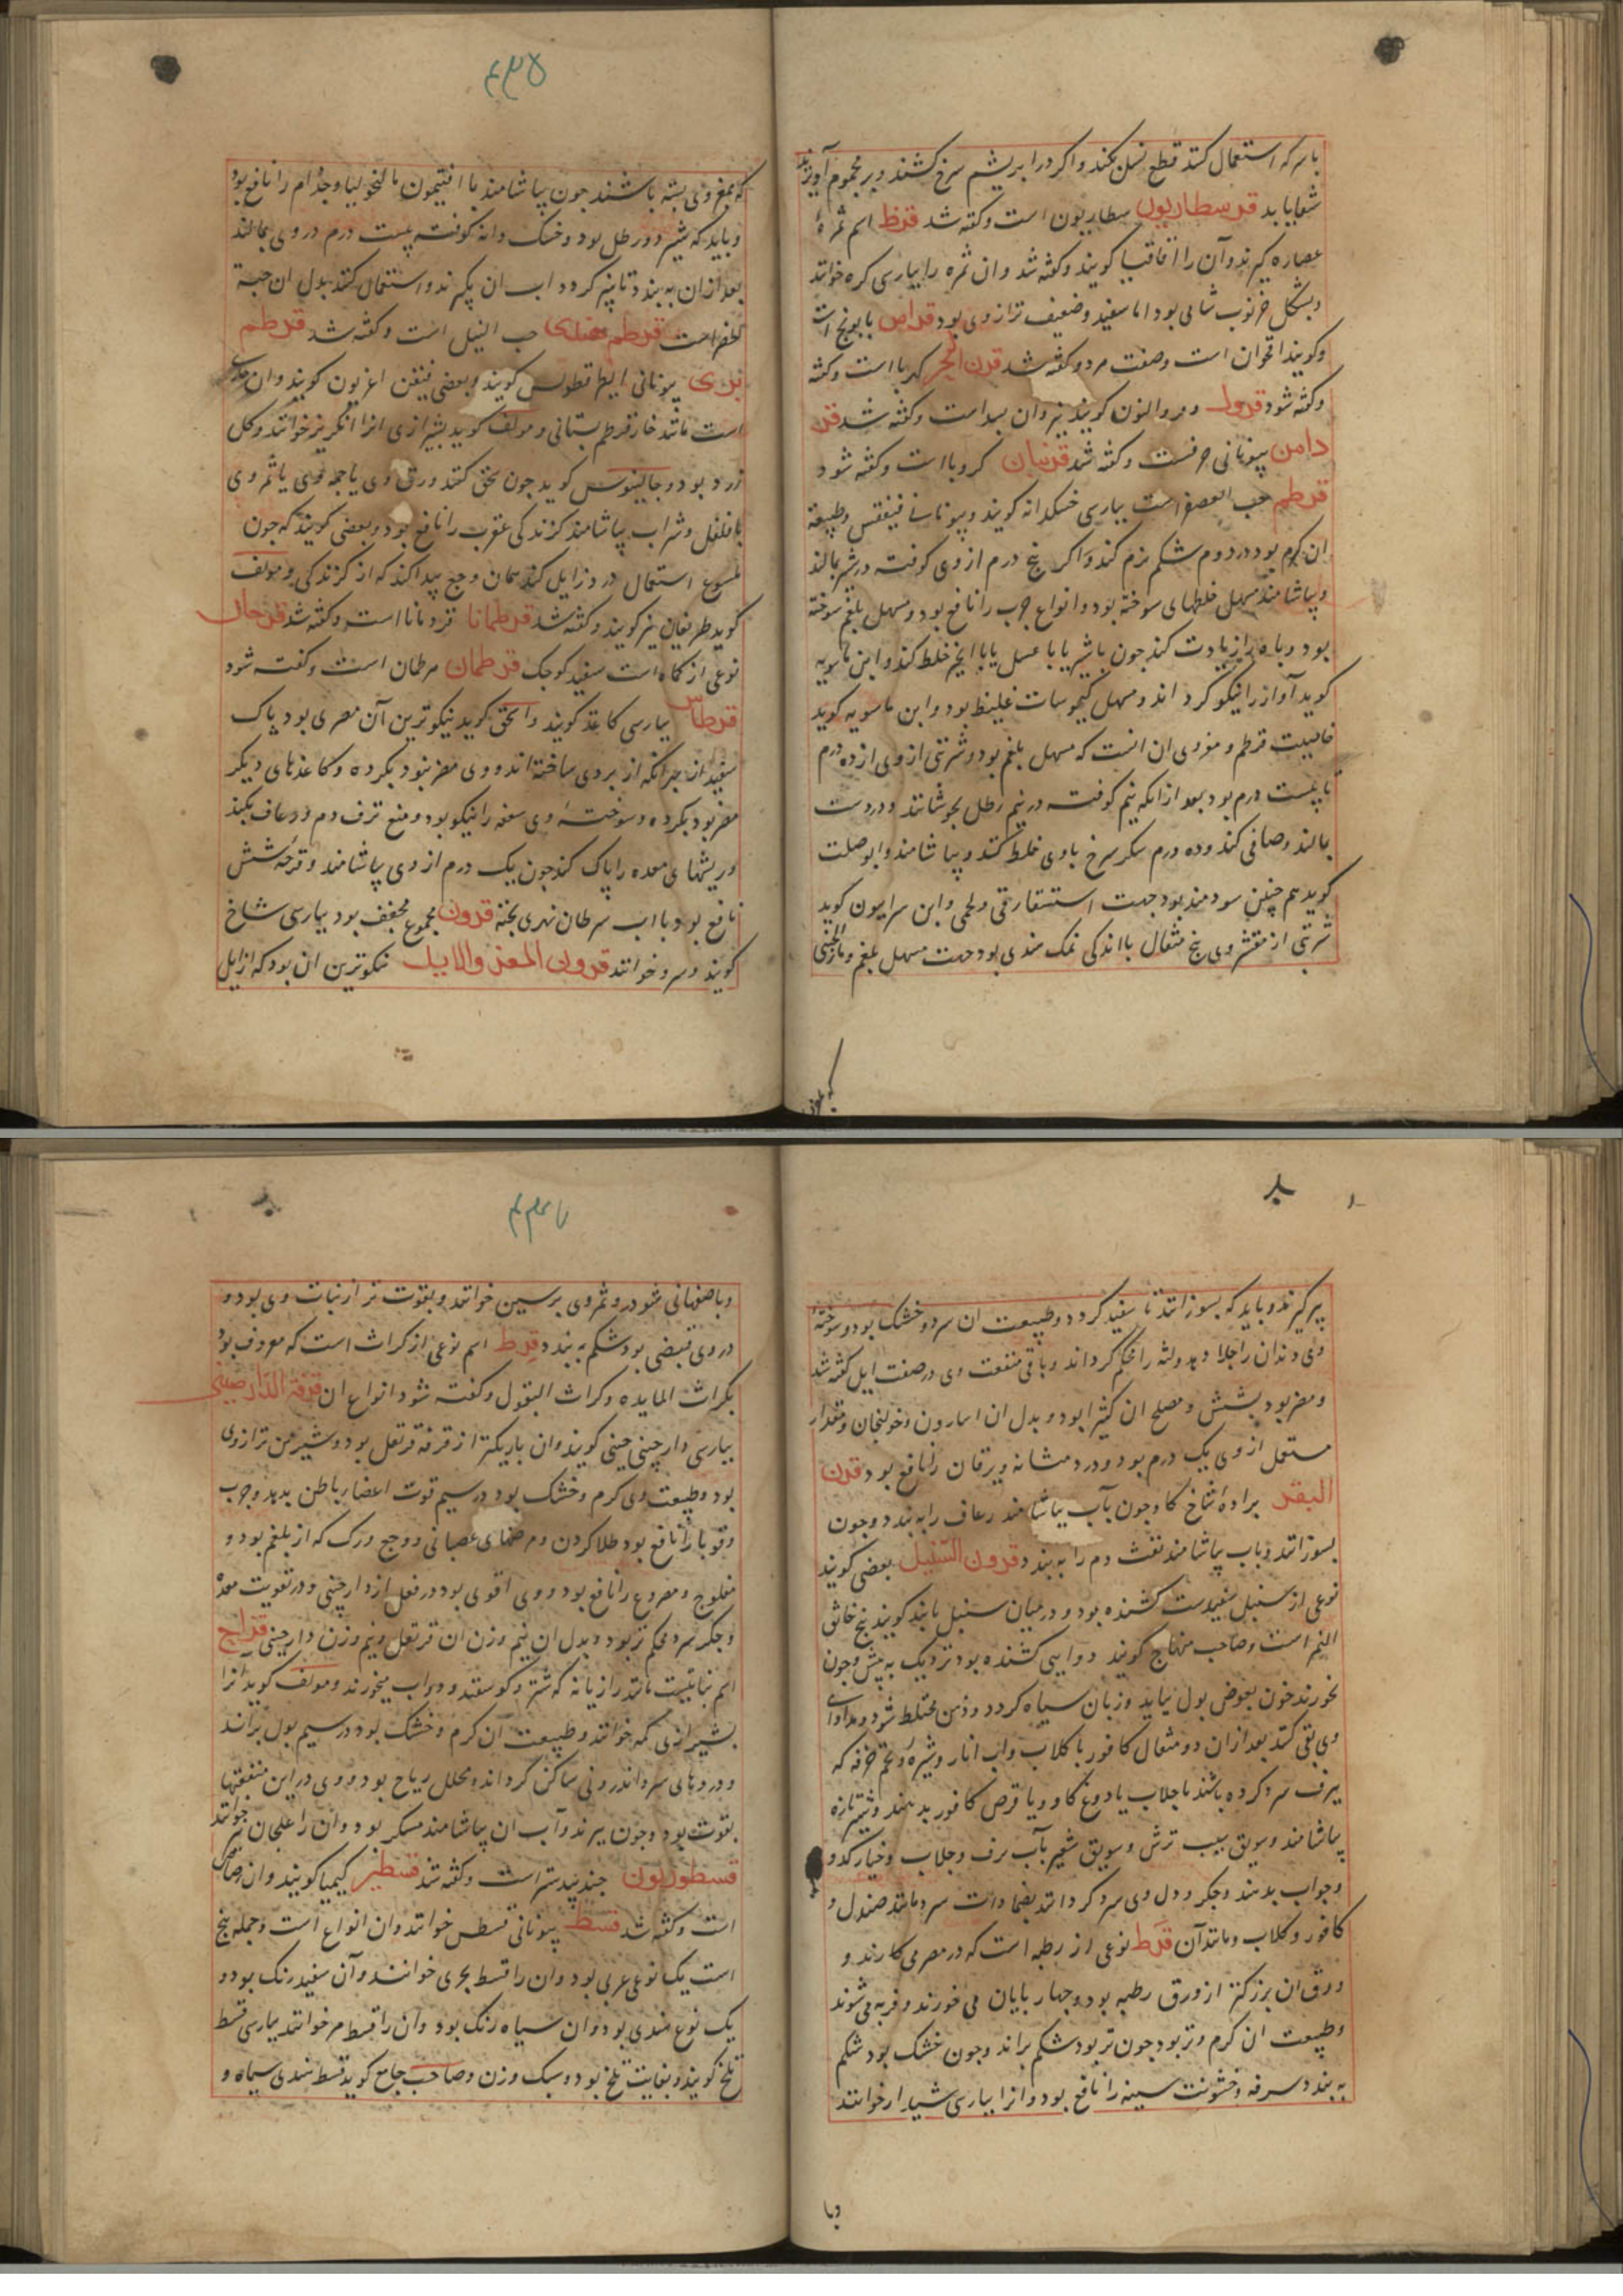 باسرکه استعمال کنند قطع نسل بکند و اکر در ابریشم سرخ کشند و بر محموم آویزند
شفا یابد قرسطاریون سطاریون است و کفته شد قرظ اسم ثمرهٔ
عصاره کیرند و آن را اقاقیا کویند و کفته شد و ان ثمره را بپارسی کره خوانند
و بشکل خرنوب شامی بود اما سفید و ضعیف تر از وی بود قراص بابونج است
و کویند اقحوان است و صفت هر دو کفته شد قرن البحر کهربا است و کفته
و کفته شود قرولـ و مروالنون کویند نیز وان بسد است و کفته شد قر
دامن بیونانی حرفست و کفته شد قرنبان کرویا است و کفته شود
قرطم حب العصفر است بپارسی خسکدانه کویند و بیونانی فنیفقس و طبیعة
ان کرم بود در دوم شکم نرم کند و اکر پنج درم از وی کوفته در شیر بمالند
و بیاشامند مسهل خلطهای سوخته بود و انواع جرب را نافع بود و مسهل بلغم سوخته
بود و باه را زیادت کند چون باشیر یا با عسل یا با انجیر خلط کند و ابن ماسویه
کوید آواز را نیکو کرداند و مسهل کیموسات غلیظ بود و ابن ماسویه کوید
خاصیت قرطم و مغز وی ان است که مسهل بلغم بود و شربتی از وی از ده درم
تا بیست درم بود بعد از انکه نیم کوفته در نیم رطل بجوشانند و در دست
بمالند و صافی کنند و ده درم سکر سرخ با وی خلط کنند و بیاشامند و ابو صلت
کوید هم چنین سودمند بود جهت استسقاء زقی و لحمی و ابن سرابیون کوید
شربتی از مقشر وی پنج مثقال با اندکی نمک هندی بود جهت مسهل بلغم و ماءالجبنی
که بمغز وی بسته باشند چون بیاشامند با افتیمون مالنخولیا و جذام را نافع بود
و باید که شیر دو رطل بود و خسک دانه کوفته بیست درم در وی بمالند
بعد از ان به بندد تا پنیر کردد اب ان بکیرند و استعمال کنند بدل ان حبة
الخضراست قرطم هندی حب النیل است و کفته شد قرطم
بری بیونانی ایطراقطولس کویند و بعضی فنیقن اغریون کویند و ان
است مانند خار قرطم بستانی و مولف کوید بشیرازی انرا انکریز خوانند و کل
زرد بود و جالینوس کوید چون سحق کنند ورق وی یا جمه وی یا ثمر وی
با فلفل و شراب بیاشامند کزندکی عقرب را نافع بود و بعضی کویند که چون
ملسوع استعمال در د زایل کند همان وجع پیدا کند که از کزندکی و مولف
کوید طریغان نیز کویند و کفته شد قرطمانا قردمانا است و کفته شد قرحان
نوعی از کماه است سفید کوجک قرطمان هرطمان است و کفته شود
قرطاس بپارسی کاغذ کویند و اسحق کوید نیکوترین آن مصری بود پاک
سفید از جز انکه از بردی ساخته اند و وی مضر بنود بکرده و کاغذهای دیکر
مضر بود بکرده و سوختهٔ وی سعفه را نیکو بود و منع نزف دم و رعاف بکند
و ریشهای معده را پاک کند چون یک درم از وی بیاشامند و قرحه شش
نافع بود با اب سرطان نهری پخته قرون مجموع مجفف بود بپارسی شاخ
کویند و سرو خوانند قرون المعز والایل نیکوترین ان بود که از ایل
پیر کیرند و باید که بسوزانند تا سفید کردد و طبیعت ان سرد و خشک بود و سوختهٔ
وی دندان را جلا دهد و لثه را محکم کرداند و باقی منفعت وی در صفت ایل کفته شد
و مضر بود بشش و مصلح ان کثیرا بود و بدل ان اسارون و خولنجان و مقدار
مستعمل از وی یک درم بود و درد مثانه و یرقان را نافع بود قرن
البقر برادهٔ شاخ کاو چون بآب بیاشامند رعاف را به بندد و چون
بسوزانند و باب بیاشامند نفث دم را به بندد قرون السنبل بعضی کویند
نوعی از سنبل سفیدست کشنده بود و در میان سنبل یابند کویند بیخ خانق
النمر است و صاحب منهاج کویند دوایی کشنده بود نزدیک به بیش و چون
بخورند خون بعوض بول بیاید و زبان سیاه کردد و ذهن مختلط شود و مداوای
وی بقی کنند بعد از ان دو مثقال کافور با کلاب و اب انار و شیرهٔ تخم خرفه که
ببرف سرد کرده باشند با جلاب یا دوغ کاو و یا قرص کافور بدهند و شیر تازه
بیاشامند و سویق سیب ترش و سویق شعیر بآب برف و جلاب و خیار کدو
و جواب بدهند و جکر و دل وی سرد کردانند بضمادات سرد مانند صندل و
کافور و کلاب و مانند آن قرط نوعی از رطبه است که در مصر می کارند و
ورق ان بزرکتر از ورق رطبه بود و چهار پایان می خورند و فربه می شوند
و طبیعت ان کرم و تر بود چون تر بود شکم براند و چون خشک بود شکم
به بندد سرفه و خشونت سینه را نافع بود و انرا بپارسی شبدار خوانند
وبا
وباصفهانی شودر و ثمر وی برسین خوانند و بقوت تر از نبات وی بود و
در وی قبضی بود شکم به بندد قرط اسم نوعی از کراث است که معروف بود
بکراث المایده و کراث البقول و کفته شود انواع ان قرفة الدارصینی
بپارسی دارچینی چینی کویند و ان باریکتر از قرفه قرنفل بود و شیرین تر از وی
بود و طبیعت وی کرم و خشک بود در سیم قوت اعضاء باطن بدهد و جرب
و قوبا را نافع بود طلا کردن و مرضهای عصبانی و وجع ورک که از بلغم بود و
مفلوج و مصروع را نافع بود و وی اقوی بود در فعل از دارچینی و در تقویت معده
و جکر سرد محکم تر بود و بدل ان نیم وزن ان قرنفل و نیم وزن دارچینی قزاح
اسم نباتیست مانند رازیانه که شتر و کوسفند و دواب میخورند و مولف کوید انرا
بشیرازی کمه خوانند و طبیعت آن کرم و خشک بود در سیم بول براند
و دردهای سرد اندرونی ساکن کرداند و محلل ریاح بود و وی در این منفعتها
بقوت بود و چون بپزند و آب ان بیاشامند مسکر بود و ان را علجان نیز خوانند
قسطوریون جندبیدستر است و کفته شد قسطیر کیمیا کویند و ان رصاص
است و کفته شد قسط بیونانی قسطس خوانند و ان انواع است و جمله پنج
است یک نوع عربی بود و ان را قسط بحری خوانند و آن سفید رنک بود و
یک نوع هندی بود و ان سیاه رنک بود و آن را قسط مر خوانند بپارسی قسط
تلخ کویند و بغایت تلخ بود و سبک وزن و صاحب جامع کوید قسط هندی سیاه و